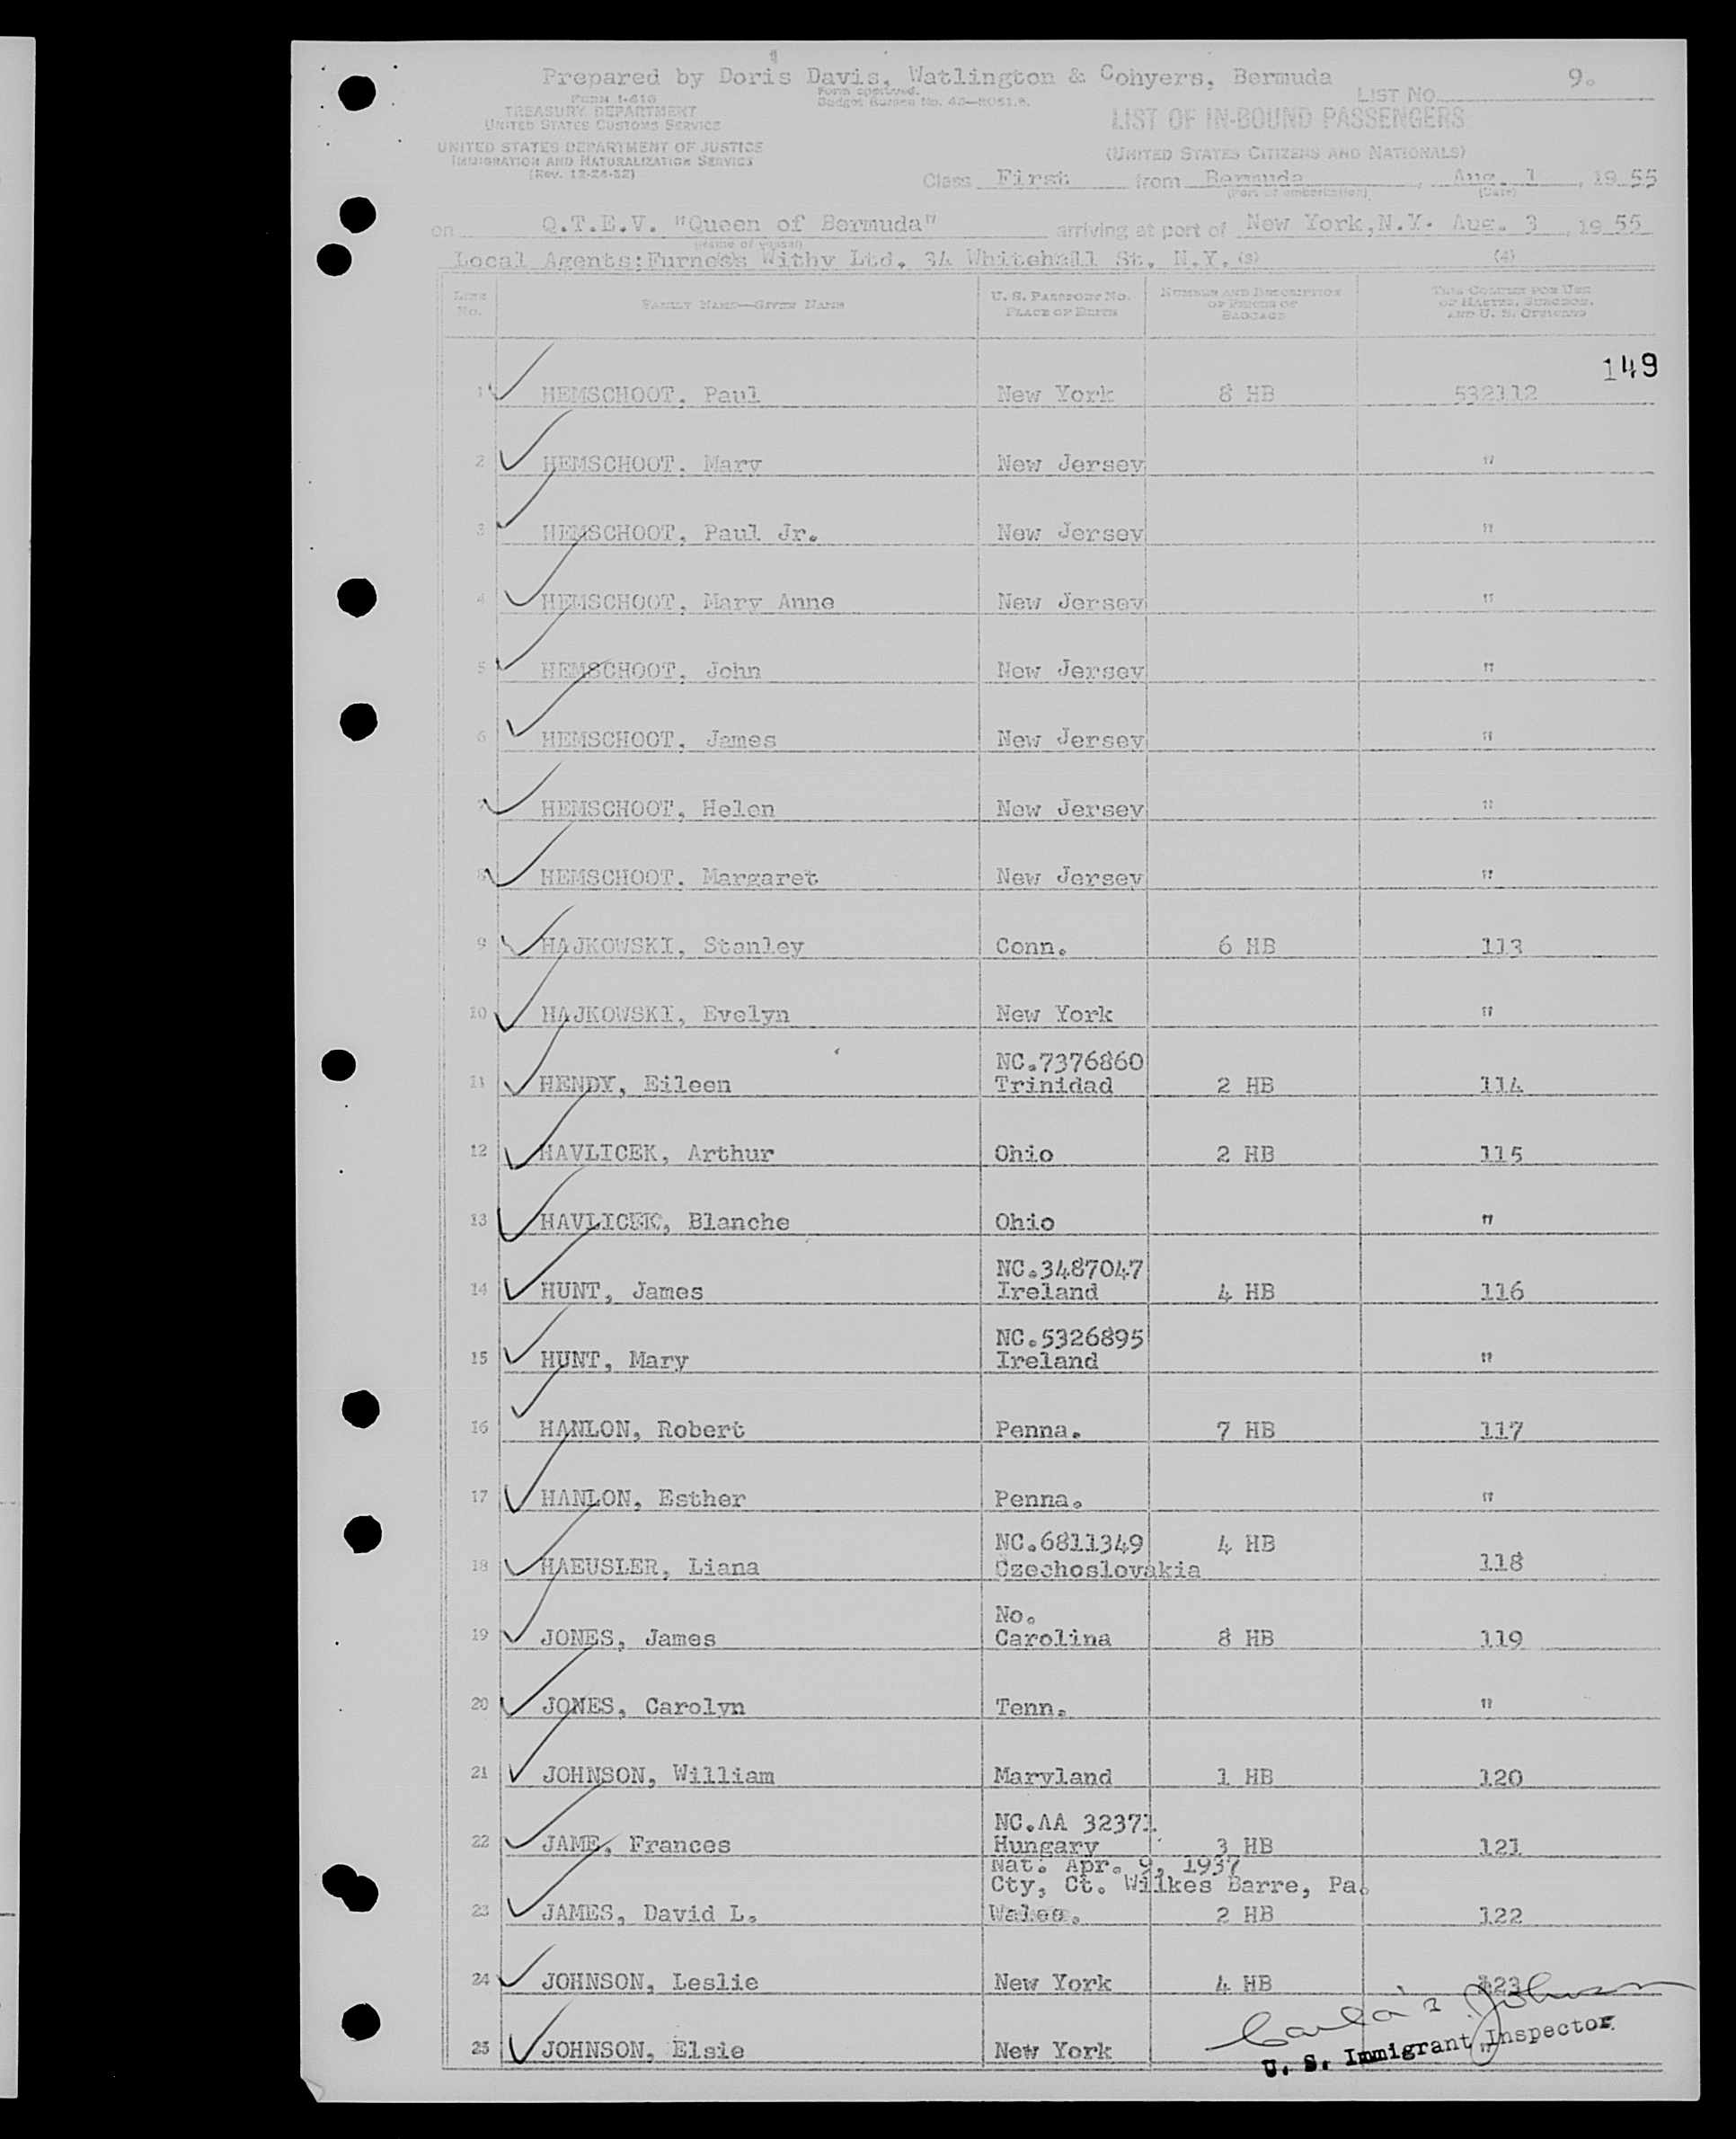 Prepared by Doris Davis, Watlington & Conyers, Bermuda
9.
FORM I-418
Form approved.
Budget Bureau No. 43-R051.2.
LIST NO.
TREASURY DEPARTMENT
UNITED STATES CUSTOMS SERVICE
LIST OF IN-BOUND PASSENGERS
UNITED STATES DEPARTMENT OF JUSTICE
IMMIGRATION AND NATURALIZATION SERVICE
(UNITED STATES CITIZENS AND NATIONALS)
(Rev. 12-24-52)
Class First from Bermuda, Aug. 1, 1955
(Port of embarkation) (Date)
on Q.T.E.V. "Queen of Bermuda" arriving at port of New York, N.Y. Aug. 3, 1955
(Name of vessel)
Local Agents: Furness Withy Ltd. 34 Whitehall St, N.Y. (3) (4)
LINE NO. FAMILY NAME—GIVEN NAME U. S. PASSPORT NO. PLACE OF BIRTH NUMBER AND DESCRIPTION OF PIECES OF BAGGAGE THIS COLUMN FOR USE OF MASTER, SURGEON, AND U. S. OFFICERS
149
1 HEMSCHOOT, Paul New York 8 HB 532112
2 HEMSCHOOT, Mary New Jersey "
3 HEMSCHOOT, Paul Jr. New Jersey "
4 HEMSCHOOT, Mary Anne New Jersey "
5 HEMSCHOOT, John New Jersey "
6 HEMSCHOOT, James New Jersey "
7 HEMSCHOOT, Helen New Jersey "
8 HEMSCHOOT, Margaret New Jersey "
9 HAJKOWSKI, Stanley Conn. 6 HB 113
10 HAJKOWSKI, Evelyn New York "
NC.7376860
11 HENDY, Eileen Trinidad 2 HB 114
12 HAVLICEK, Arthur Ohio 2 HB 115
13 HAVLICEK, Blanche Ohio "
NC.3487047
14 HUNT, James Ireland 4 HB 116
NC.5326895
15 HUNT, Mary Ireland "
16 HANLON, Robert Penna. 7 HB 117
17 HANLON, Esther Penna. "
NC.6811349 4 HB
18 HAEUSLER, Liana Czechoslovakia 118
No.
19 JONES, James Carolina 8 HB 119
20 JONES, Carolyn Tenn. "
21 JOHNSON, William Maryland 1 HB 120
NC.AA 32371
22 JAME, Frances Hungary 3 HB 121
Nat. Apr. 9, 1937
Cty, Ct. Wilkes Barre, Pa.
23 JAMES, David L. Wales. 2 HB 122
24 JOHNSON, Leslie New York 4 HB 123
Johnson
25 JOHNSON, Elsie New York "
U. S. Immigrant Inspector